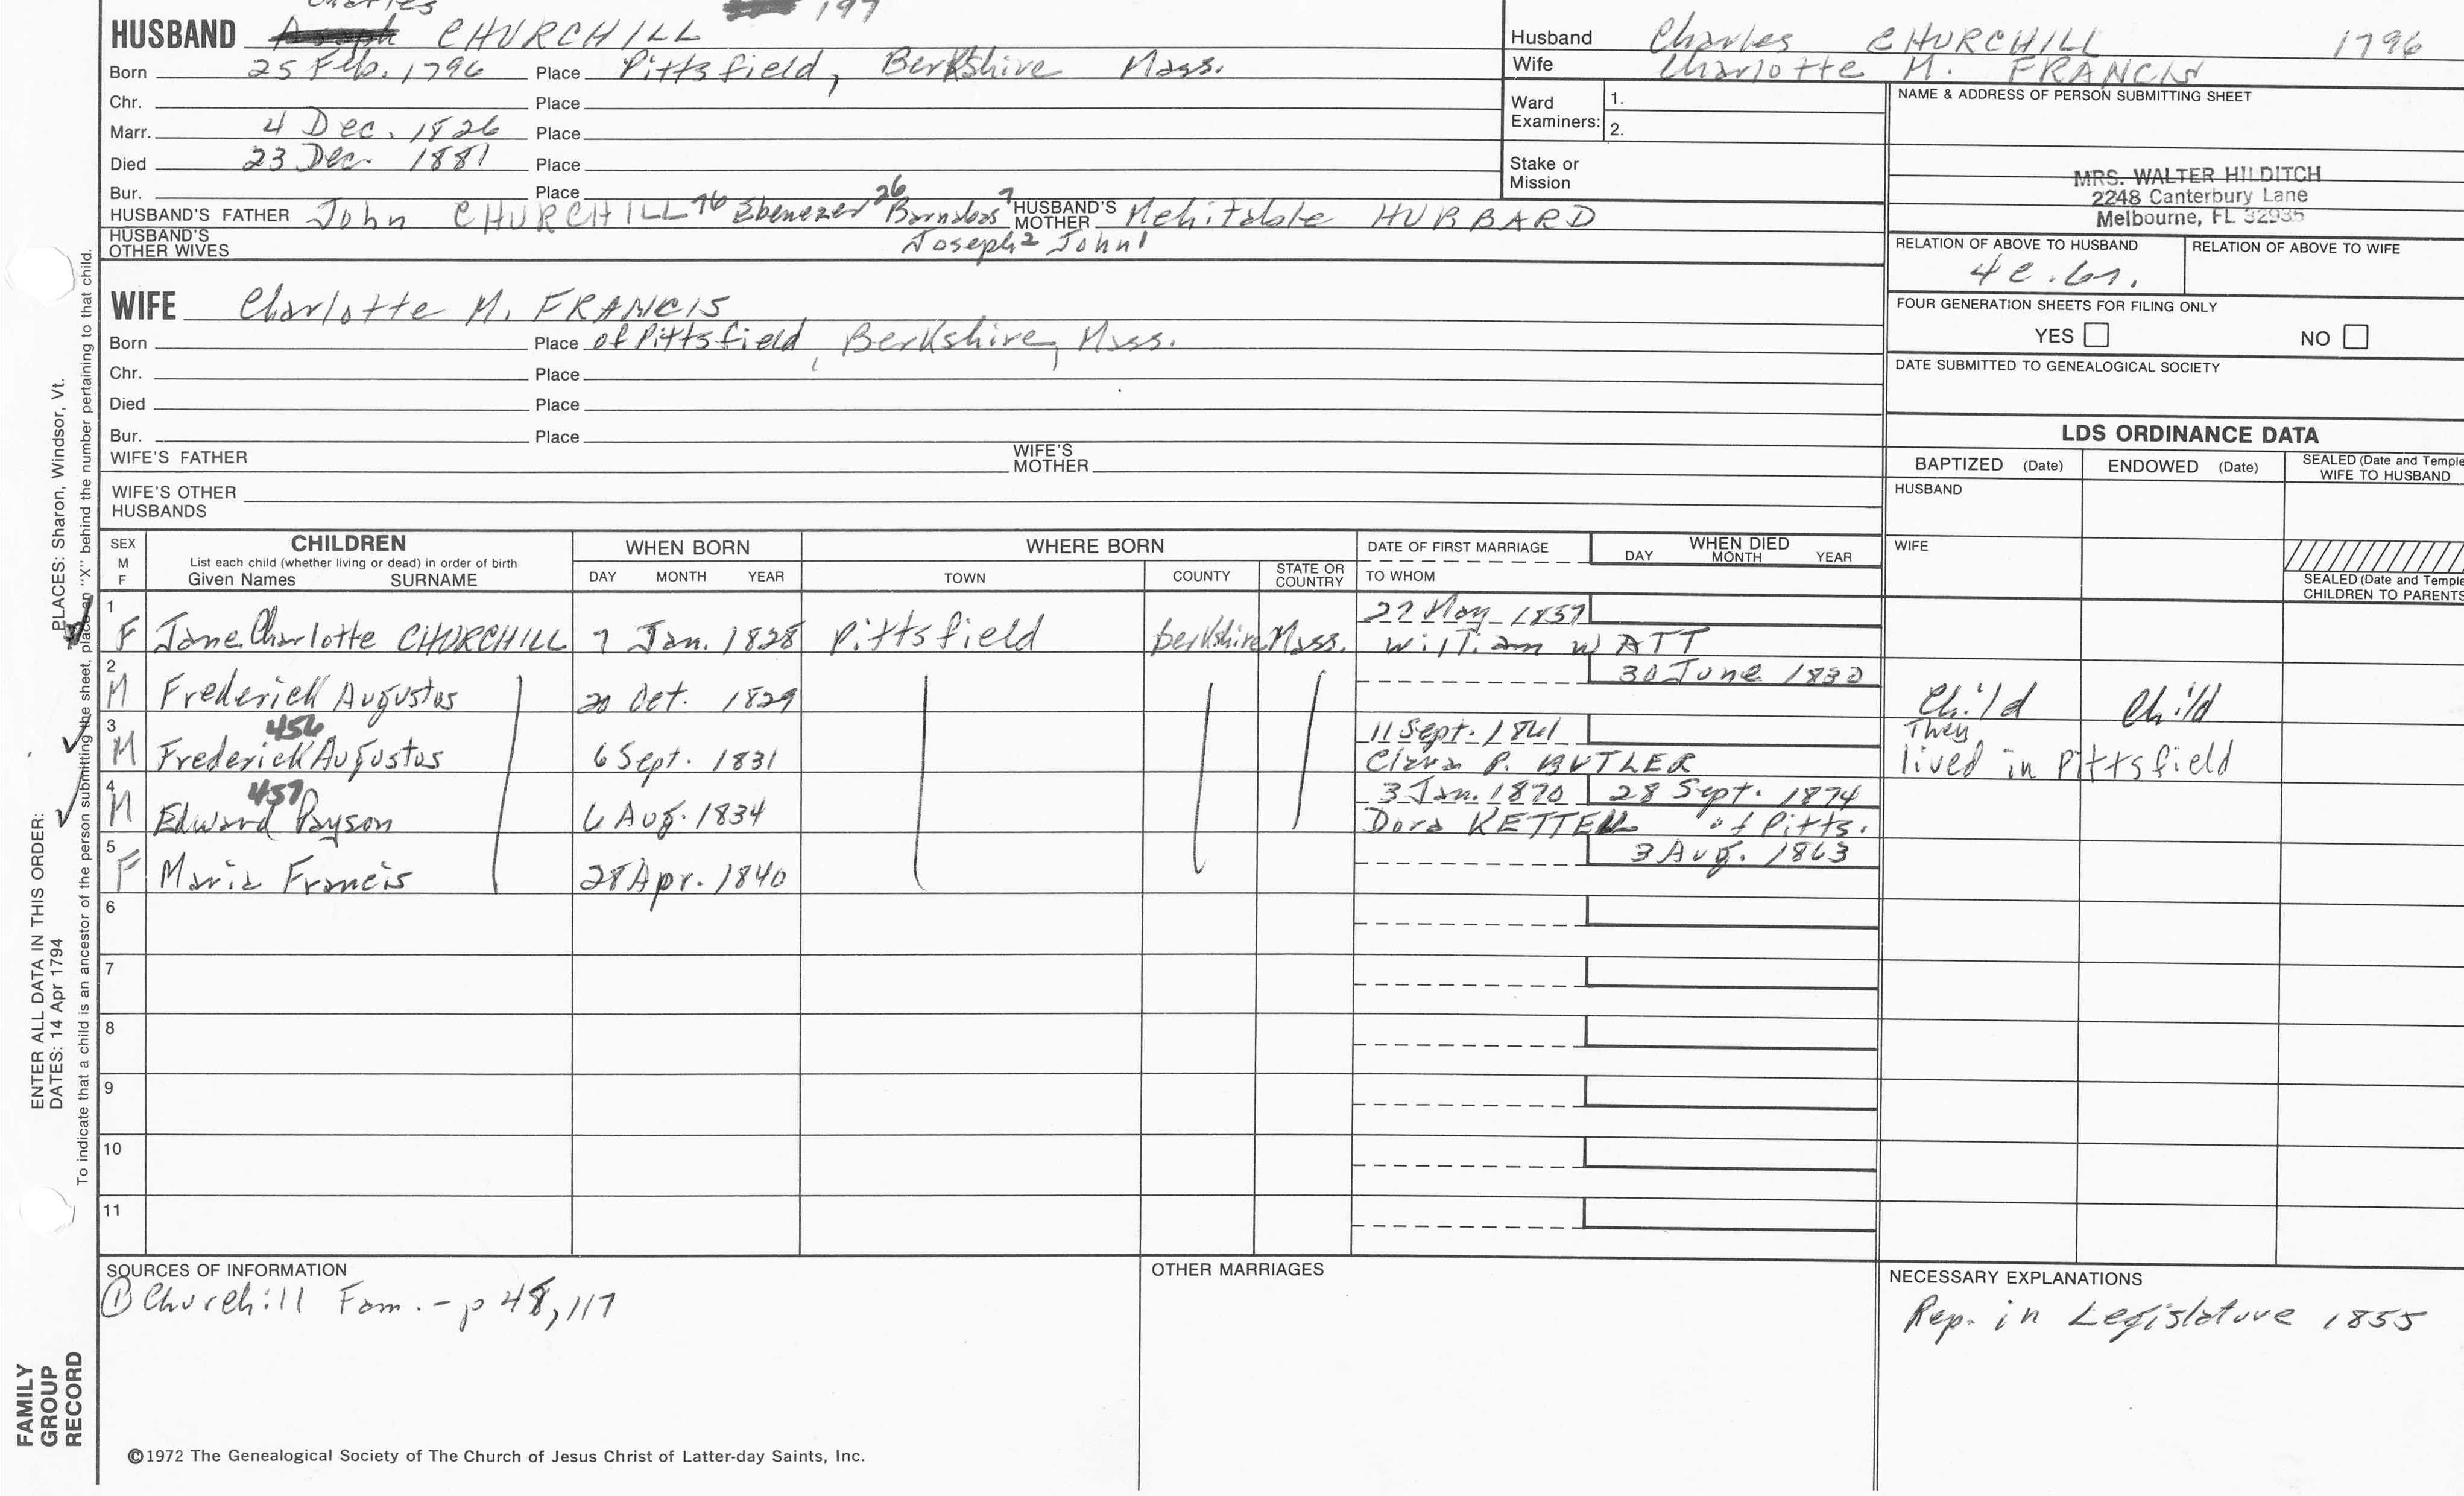 Charles 197
HUSBAND CHURCHILL
Born 25 Feb. 1796 Place Pittsfield, Berkshire Mass.
Chr. Place
Marr. 4 Dec. 1826 Place
Died 23 Dec. 1881 Place
Bur. Place
HUSBAND'S FATHER John CHURCHILL 76 Ebenezer 26 Barnabas 7 HUSBAND'S MOTHER Mehitable HUBBARD
HUSBAND'S OTHER WIVES Joseph2 John1
Husband Charles CHURCHILL 1796
Wife Charlotte M. FRANCIS
Ward Examiners: 1.
2.
Stake or Mission
NAME & ADDRESS OF PERSON SUBMITTING SHEET
MRS. WALTER HILDITCH
2248 Canterbury Lane
Melbourne, FL 32935
RELATION OF ABOVE TO HUSBAND RELATION OF ABOVE TO WIFE
4c.6r.
FOUR GENERATION SHEETS FOR FILING ONLY
YES NO
DATE SUBMITTED TO GENEALOGICAL SOCIETY
WIFE Charlotte M. FRANCIS
Born Place of Pittsfield, Berkshire, Mass.
Chr. Place
Died Place
Bur. Place
WIFE'S FATHER WIFE'S MOTHER
WIFE'S OTHER HUSBANDS
LDS ORDINANCE DATA
BAPTIZED (Date) ENDOWED (Date) SEALED (Date and Temple WIFE TO HUSBAND
HUSBAND
WIFE
SEALED (Date and Temple
CHILDREN TO PARENTS
SEX M F
CHILDREN
List each child (whether living or dead) in order of birth
Given Names SURNAME
WHEN BORN
DAY MONTH YEAR
WHERE BORN
TOWN COUNTY STATE OR COUNTRY
DATE OF FIRST MARRIAGE
TO WHOM
WHEN DIED
DAY MONTH YEAR
1 27 May 1857
F Jane Charlotte CHURCHILL 7 Jan. 1828 Pittsfield berkshire Mass. William WATT
2 30 June 1830
M Frederick Augustus 20 Oct. 1829 Child Child
3 456 11 Sept. 1861 They
M Frederick Augustus 6 Sept. 1831 Clara P. BUTLER lived in Pittsfield
4 457 3 Jan. 1870 28 Sept. 1874
M Edward Payson 6 Aug. 1834 Dora KETTELL of Pitts.
5 3 Aug. 1863
F Maria Francis 28 Apr. 1840
6
7
8
9
10
11
SOURCES OF INFORMATION
① Churchill Fam. - p 48, 117
OTHER MARRIAGES
NECESSARY EXPLANATIONS
Rep. in Legislature 1855
©1972 The Genealogical Society of The Church of Jesus Christ of Latter-day Saints, Inc.
FAMILY
GROUP
RECORD
ENTER ALL DATA IN THIS ORDER:
DATES: 14 Apr 1794 PLACES: Sharon, Windsor, Vt.
To indicate that a child is an ancestor of the person submitting the sheet, place an "X" behind the number pertaining to that child.